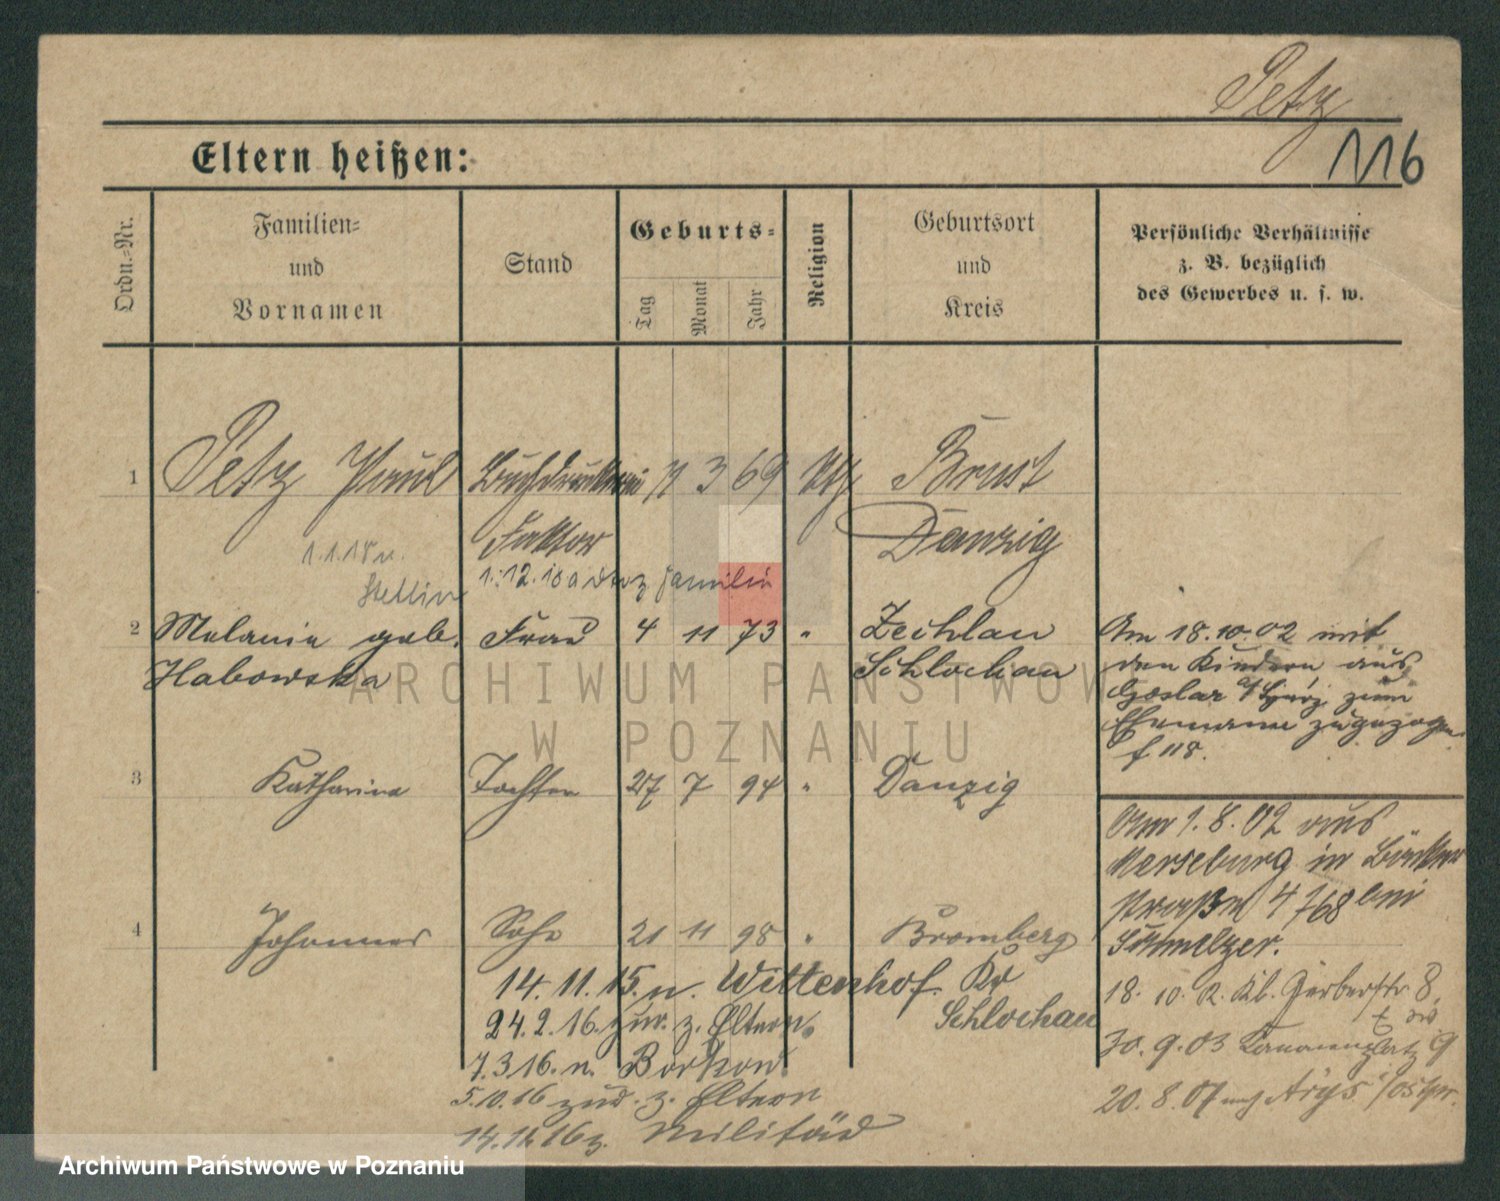 Petz
116
Eltern heißen:
Ordn.-Nr.
Familien-
und
Vornamen
Stand
Geburts-
Tag
Monat
Jahr
Religion
Geburtsort
und
Kreis
Persönliche Verhältnisse
z. B. bezüglich
des Gewerbes u. s. w.
1 Petz Paul Buchdruckerei 3 69 Kth Brust
Faktor Danzig
1.1.18 n.
Stettin
1.12.18 Familie
2 Melanie geb. Frau 4 11 73 " Zechlau
Habowska Schlochau
Am 18.10.02 mit
den Kindern aus
Goslar a/Harz zum
Ehemann zugezogen
f 118.
3 Katharina Tochter 27 7 94 " Danzig
Am 1.8.02 aus
Merseburg in
straße 4 768 bei
Schmelzer.
4 Johannes Sohn 21 11 98 " Bromberg
14.11.15. n. Wittenhof. Kr
Schlochau
24.2.16. zur. z. Eltern.
7.3.16. n. Borkow.
5.10.16 zur. z. Eltern
14.11.16 z. Militär
18. 10. 2. Kl. Gerberstr. 8.
30. 9. 03 9
20. 8. 07 nach Arys /Ostpr.
ARCHIWUM PAŃSTWOW
W POZNANIU
Archiwum Państwowe w Poznaniu